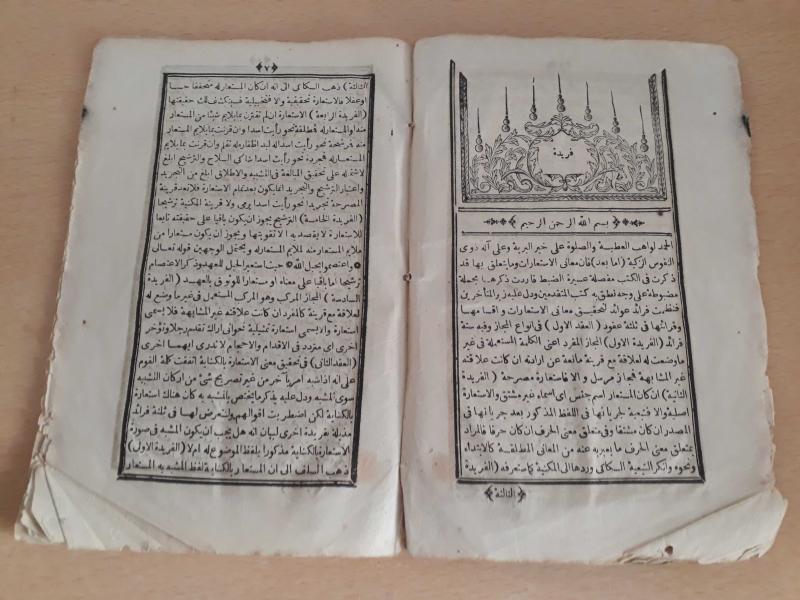 فريدة
بسم الله الرحمن الرحيم
الحمد لواهب العطية والصلوة على خير البرية وعلى آله ذوى
النفوس الزكية (اما بعد) فان معانى الاستعارات وما يتعلق بها قد
ذكرت فى الكتب مفصلة عسيرة الضبط فاردت ذكرها مجملة
مضبوطة على وجه نطق به كتب المتقدمين ودل عليه زبر المتأخرين
فنظمت فرائد عوائد لتحقيق معانى الاستعارات واقسامها
وقرائنها فى ثلثة عقود (العقد الاول) فى انواع المجاز وفيه ستة
فرائد (الفريدة الاولى) المجاز المفرد اعنى الكلمة المستعملة فى غير
ما وضعت له لعلاقة مع قرينة مانعة عن ارادته ان كانت علاقته
غير المشابهة فمجاز مرسل والا فاستعارة مصرحة (الفريدة
الثانية) ان كان المستعار اسم جنس اى اسماء غير مشتق فالاستعارة
اصلية والا فتبعية لجريانها فى اللفظ المذكور بعد جريانها فى
المصدر ان كان مشتقا وفى متعلق معنى الحرف ان كان حرفا والمراد
بمتعلق معنى الحرف ما يعبر به عنه من المعانى المطلقة كالابتداء
ونحوه وانكر التبعية السكاكى وردها الى المكنية كما ستعرفه (الفريدة
الثالثة
٧
الثالثة) ذهب السكاكى الى انه ان كان المستعار له متحققا حسا
او عقلا فالاستعارة تحقيقية والا فتخييلية فستنكشف لك حقيقتها
(الفريدة الرابعة) الاستعارة ان لم تقترن بما يلايم شيئا من المستعار
منه او المستعار له فمطلقة نحو رأيت اسدا وان قرنت بما يلايم المستعار
منه فمرشحة نحو رأيت اسدا له لبد اظفاره لم تقلم وان قرنت بما يلايم
المستعار له فمجردة نحو رأيت اسدا شاكى السلاح والترشيح ابلغ
لاشتماله على تحقيق المبالغة فى التشبيه والاطلاق ابلغ من التجريد
واعتبار الترشيح والتجريد انما يكون بعد تمام الاستعارة فلا تعد قرينة
المصرحة تجريدا نحو رأيت اسدا يرمى ولا قرينة المكنية ترشيحا
(الفريدة الخامسة) الترشيح يجوز ان يكون باقيا على حقيقته تابعا
للاستعارة لا يقصد به الا تقويتها ويجوز ان يكون مستعارا من
ملايم المستعار منه لملايم المستعار له ويحتمل الوجهين قوله تعالى
واعتصموا بحبل الله حيث استعير الحبل للعهد وذكر الاعتصام
ترشيحا اما باقيا على معناه او مستعارا للوثوق بالعهد (الفريدة
السادسة) المجاز المركب وهو المركب المستعمل فى غير ما وضع له
لعلاقة مع قرينة كالمفرد ان كانت علاقته غير المشابهة فلا يسمى
استعارة والا يسمى استعارة تمثيلية نحو انى اراك تقدم رجلا وتؤخر
اخرى اى متردد فى الاقدام والاحجام لا تدرى ايهما احرى
(العقد الثانى) فى تحقيق معنى الاستعارة بالكناية اتفقت كلمة القوم
على انه اذا شبه امر بآخر من غير تصريح شئ من اركان التشبيه
سوى المشبه ودل عليه بذكر ما يختص بالمشبه به كان هناك استعارة
بالكناية لكن اضطربت اقوالهم ولنتعرض لها فى ثلثة فرائد
مذيلة بفريدة اخرى لبيان انه هل يجب ان يكون المشبه فى صورة
الاستعارة بالكناية مذكورا بلفظ الموضوع له ام لا (الفريدة الاولى)
ذهب السلف الى ان المستعار بالكناية لفظ المشبه به المستعار